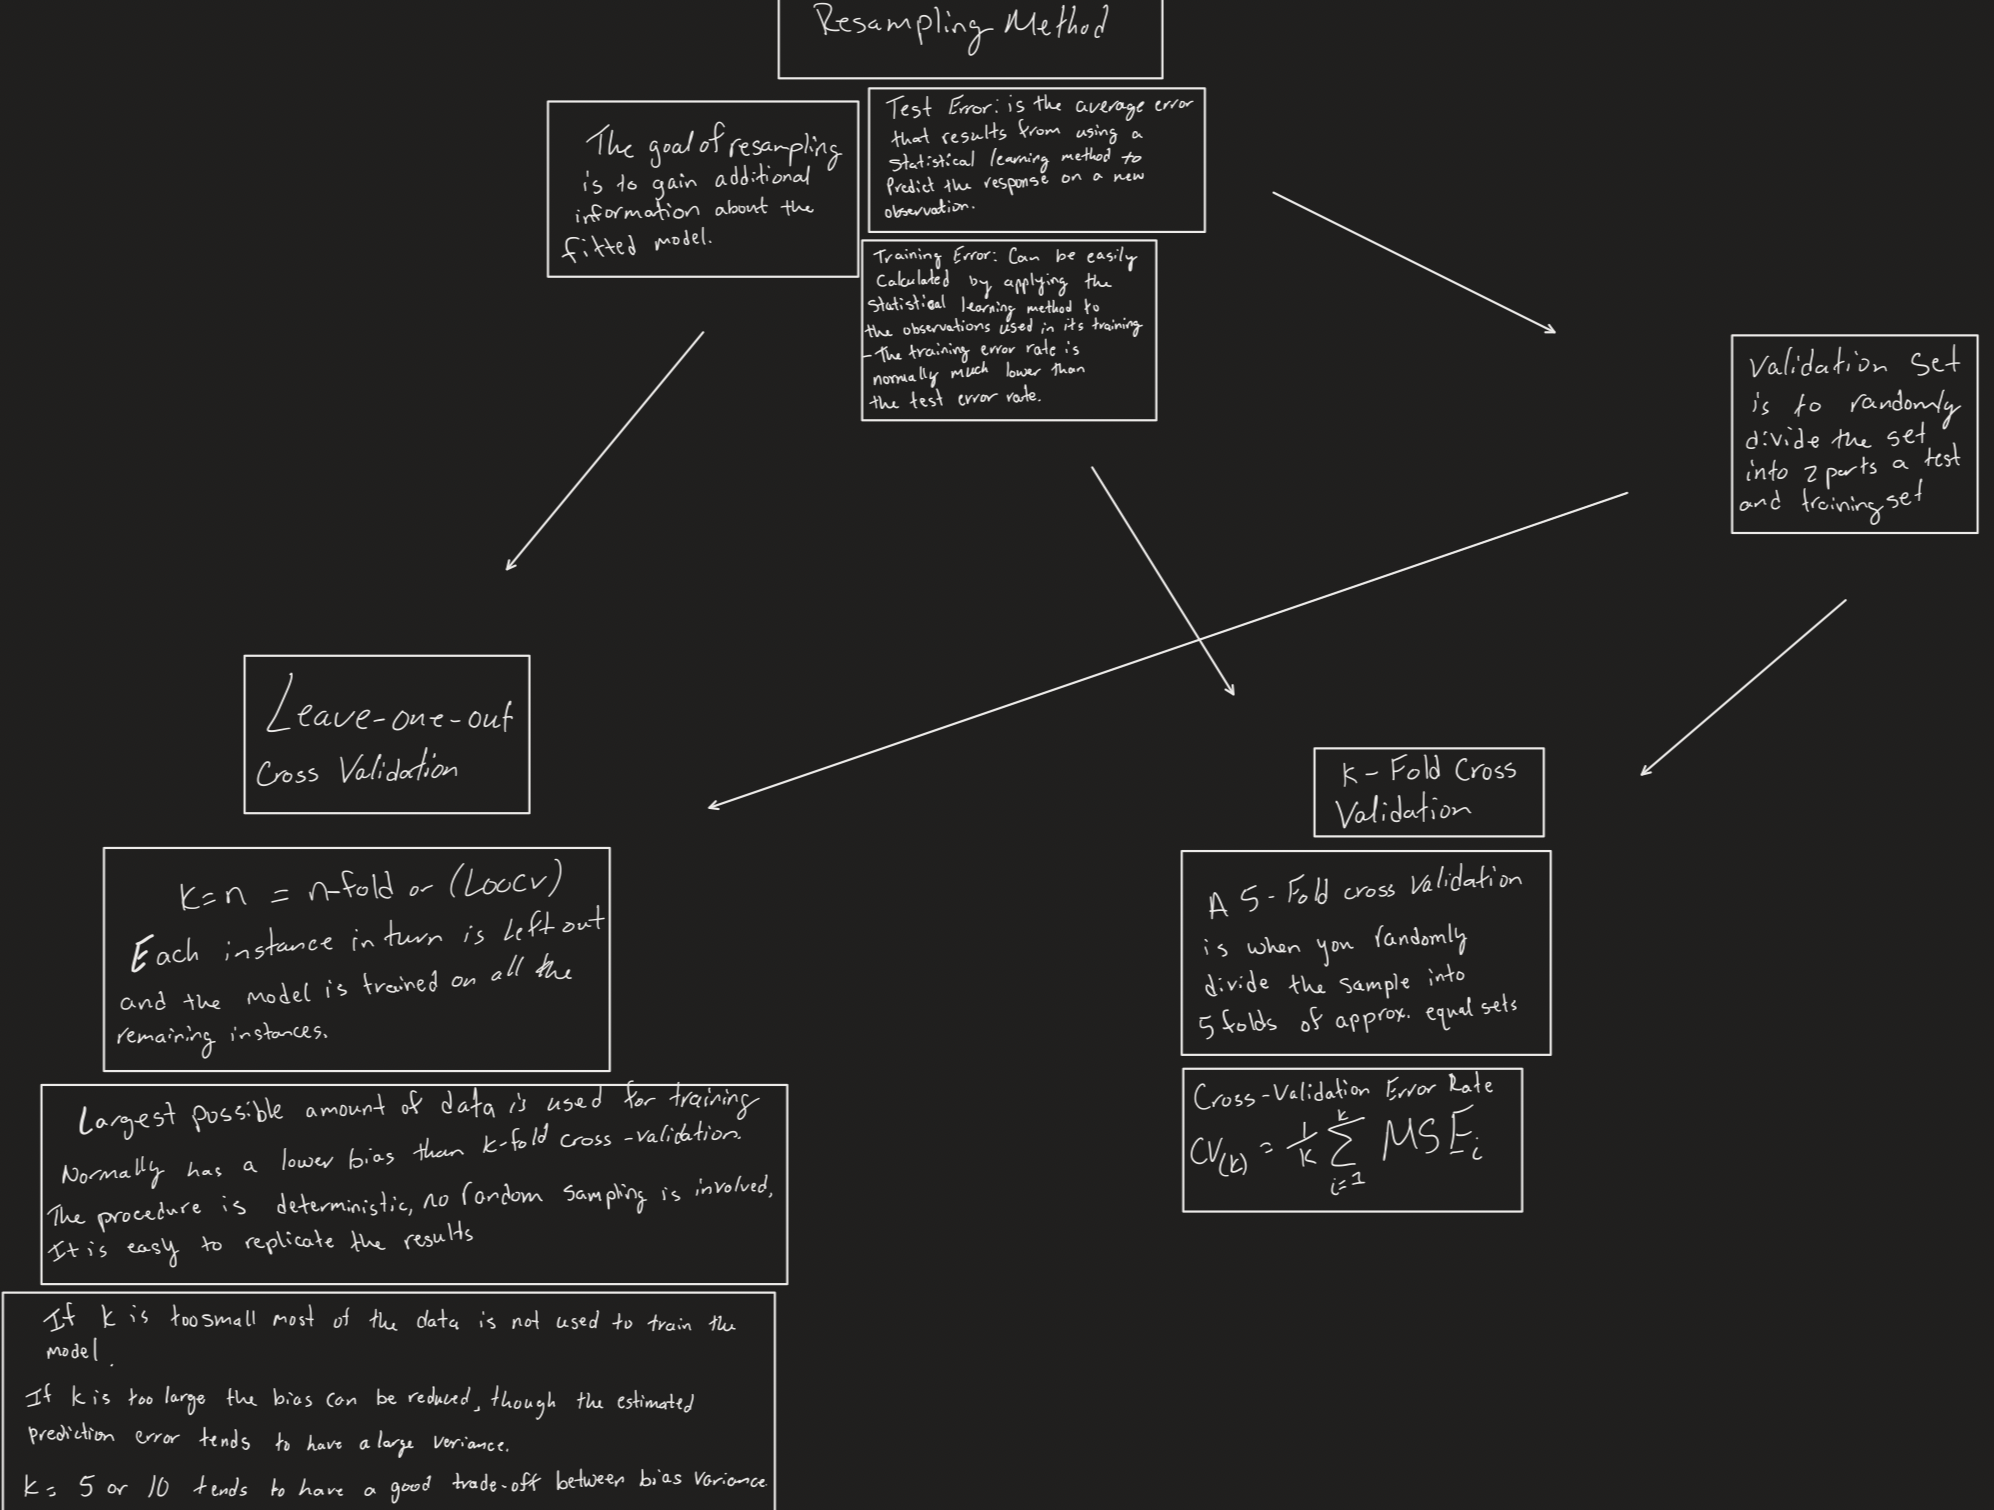 Resampling Method
The goal of resampling
is to gain additional
information about the
fitted model.
Test Error: is the average error
that results from using a
statistical learning method to
Predict the response on a new
observation.
Training Error: Can be easily
Calculated by applying the
statistical learning method to
the observations used in its training
- The training error rate is
normally much lower than
the test error rate.
Validation Set
is to randomly
divide the set
into 2 parts a test
and training set
Leave-one-out
Cross Validation
K=n = n-fold or (LOOCV)
Each instance in turn is left out
and the model is trained on all the
remaining instances.
Largest possible amount of data is used for training
Normally has a lower bias than k-fold cross-validation.
The procedure is deterministic, no random sampling is involved,
It is easy to replicate the results
If k is too small most of the data is not used to train the
model.
If k is too large the bias can be reduced, though the estimated
prediction error tends to have a large variance.
k= 5 or 10 tends to have a good trade-off between bias variance.
K-Fold Cross
Validation
A 5-Fold cross validation
is when you randomly
divide the sample into
5 folds of approx. equal sets
Cross-Validation Error Rate
CV(k) = 1/k ∑ i=1 k MSEi